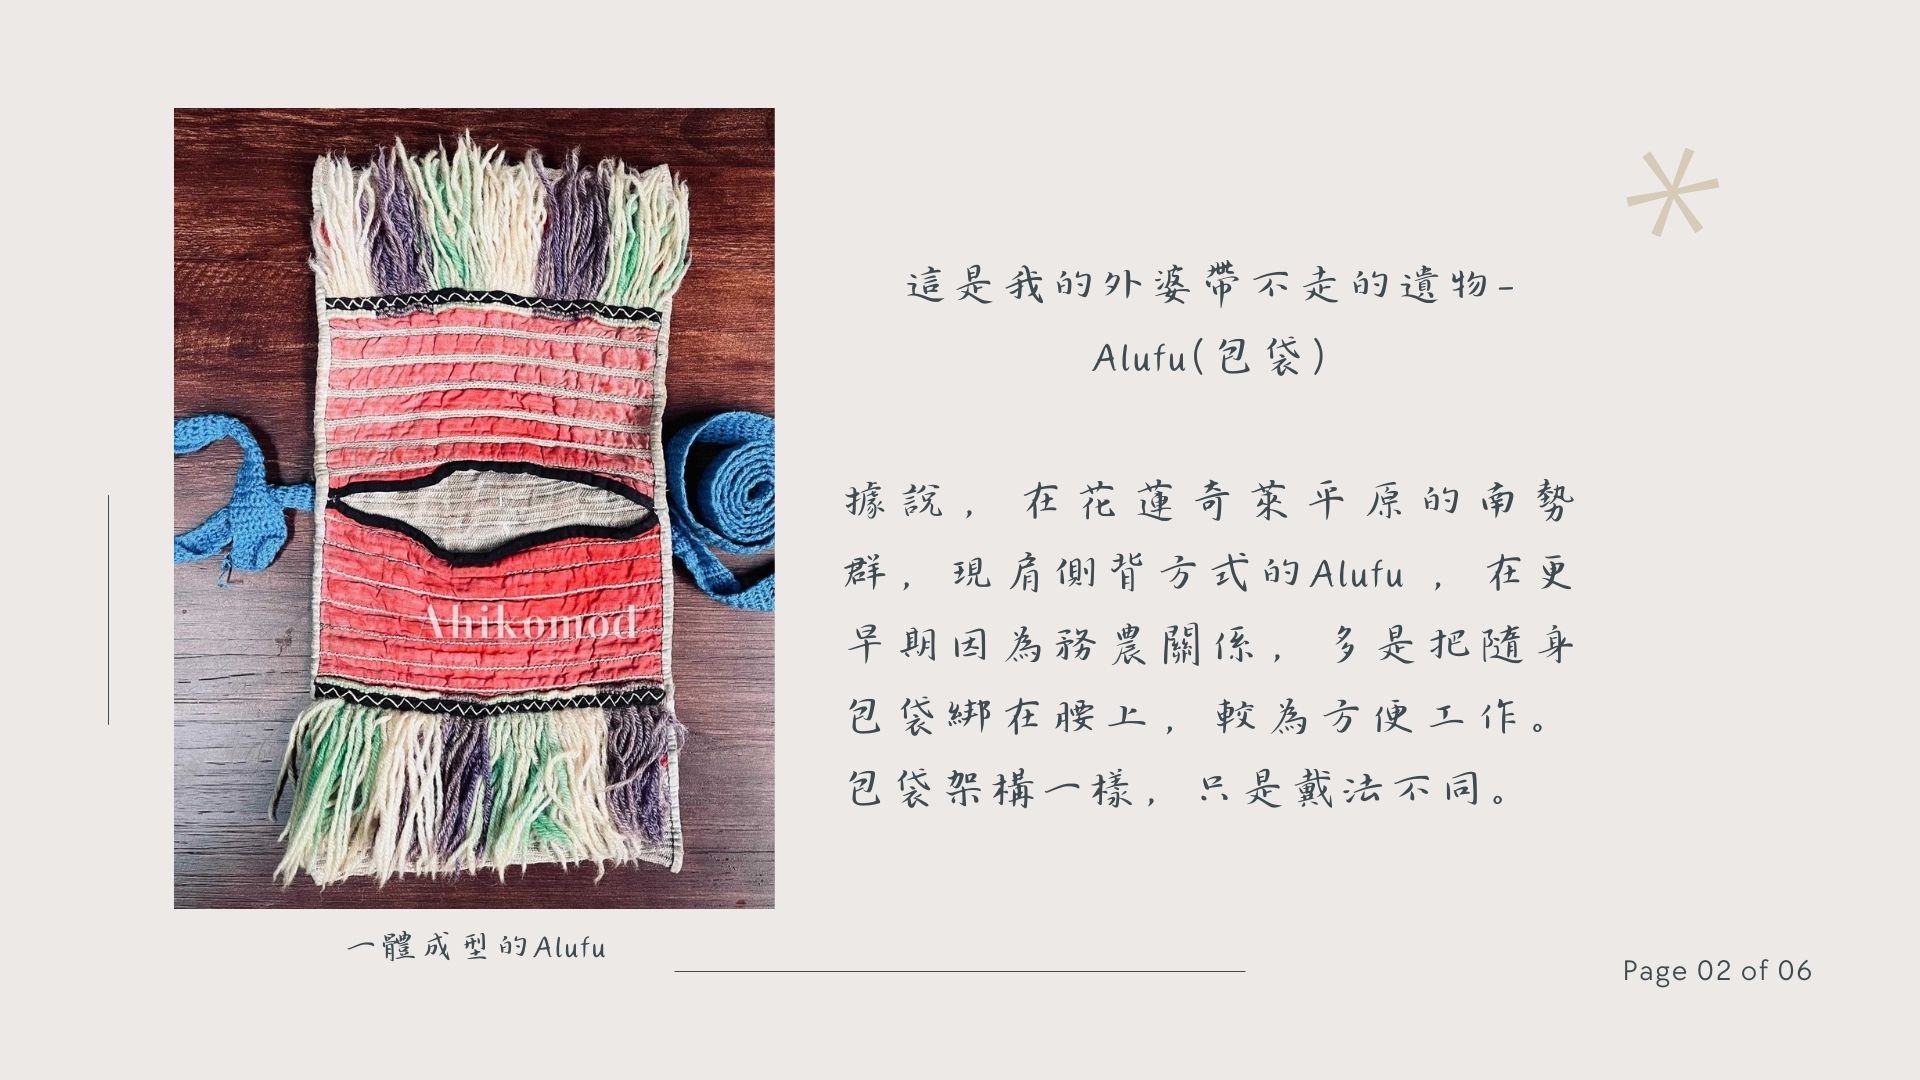 這是我的外婆帶不走的遺物-
Alufu(包袋)
據說，在花蓮奇萊平原的南勢
群，現肩側背方式的Alufu ，在更
早期因為務農關係，多是把隨身
包袋綁在腰上，較為方便工作。
包袋架構一樣，只是戴法不同。
Ahikomod
一體成型的Alufu
Page 02 of 06